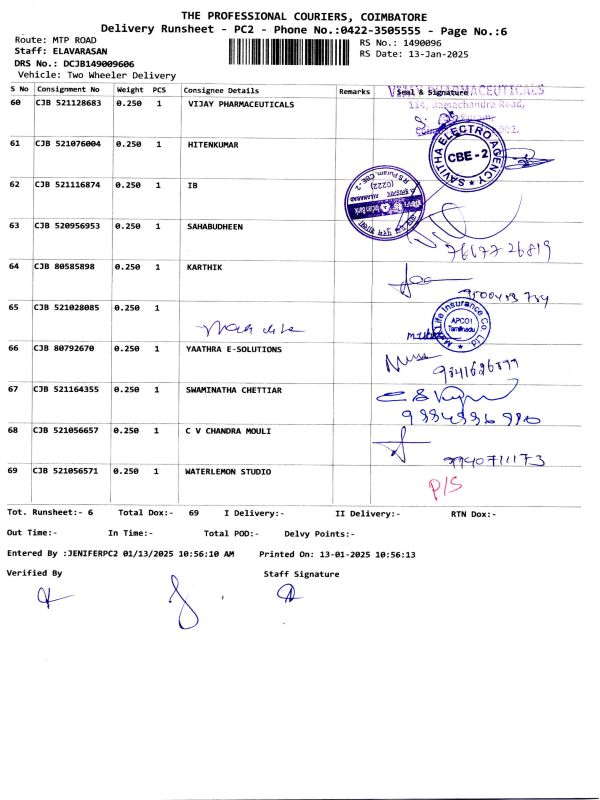 THE PROFESSIONAL COURIERS, COIMBATORE
Delivery Runsheet - PC2 - Phone No.:0422-3505555 - Page No.:6
Route: MTP ROAD
RS No.: 1490096
Staff: ELAVARASAN
RS Date: 13-Jan-2025
DRS No.: DCJB149009606
Vehicle: Two Wheeler Delivery
S No Consignment No Weight PCS Consignee Details Remarks Seal & Signature
VIJAY PHARMACEUTICALS
60 CJB 521128683 0.250 1 VIJAY PHARMACEUTICALS
114, Ramachandra Road,
61 CJB 521076004 0.250 1 HITENKUMAR
SAVITHA ELECTRO AGENCY
CBE-2
62 CJB 521116874 0.250 1 IB
R S Puram, CBE.-2
(0222)
Indian Bank
63 CJB 520956953 0.250 1 SAHABUDHEEN
7667726819
64 CJB 80585898 0.250 1 KARTHIK
65 CJB 521028085 0.250 1
Life Insurance Co. Ltd
APCO1
Tamilnadu
66 CJB 80792670 0.250 1 YAATHRA E-SOLUTIONS
67 CJB 521164355 0.250 1 SWAMINATHA CHETTIAR
68 CJB 521056657 0.250 1 C V CHANDRA MOULI
9940711173
69 CJB 521056571 0.250 1 WATERLEMON STUDIO
P/S
Tot. Runsheet:- 6 Total Dox:- 69 I Delivery:- II Delivery:- RTN Dox:-
Out Time:- In Time:- Total POD:- Delvy Points:-
Entered By :JENIFERPC2 01/13/2025 10:56:10 AM Printed On: 13-01-2025 10:56:13
Verified By Staff Signature